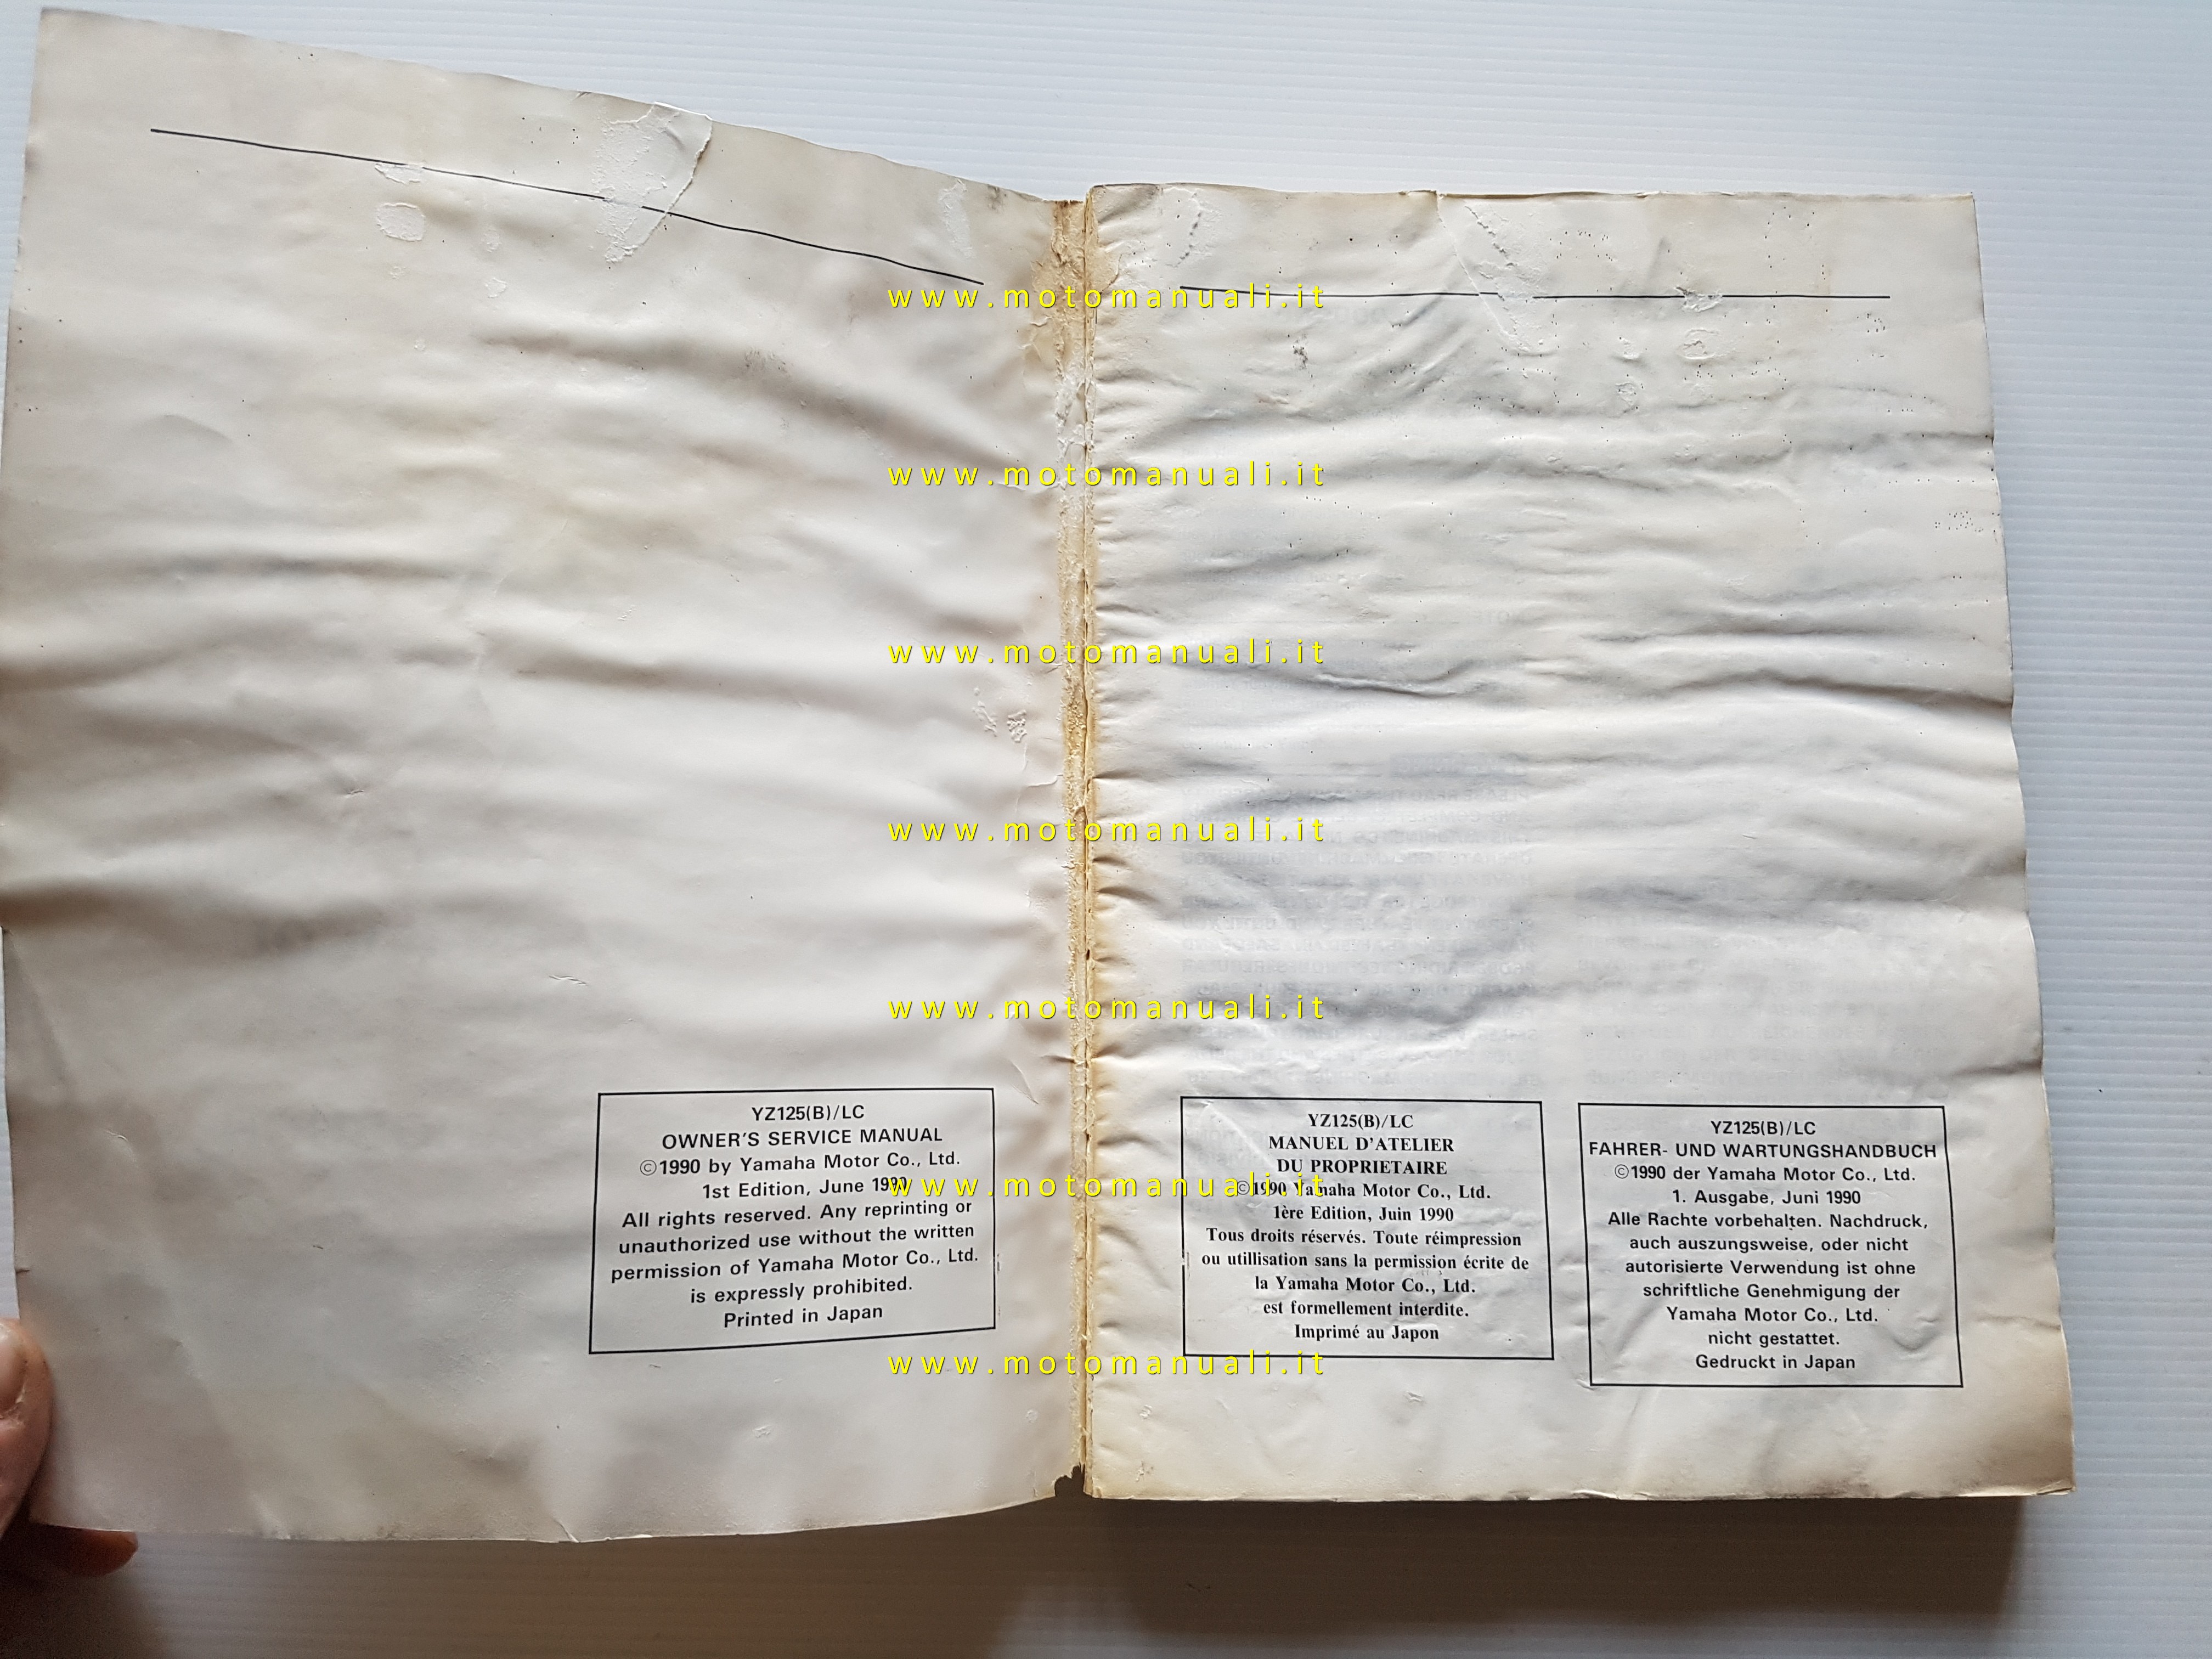 www.motomanuali.it
www.motomanuali.it
www.motomanuali.it
www.motomanuali.it
www.motomanuali.it
www.motomanuali.it
www.motomanuali.it
YZ125(B)/LC
OWNER'S SERVICE MANUAL
©1990 by Yamaha Motor Co., Ltd.
1st Edition, June 1990
All rights reserved. Any reprinting or
unauthorized use without the written
permission of Yamaha Motor Co., Ltd.
is expressly prohibited.
Printed in Japan
YZ125(B)/LC
MANUEL D'ATELIER
DU PROPRIETAIRE
©1990 Yamaha Motor Co., Ltd.
1ère Edition, Juin 1990
Tous droits réservés. Toute réimpression
ou utillisation sans la permission écrite de
la Yamaha Motor Co., Ltd.
est formellement interdite.
Imprimé au Japon
YZ125(B)/LC
FAHRER- UND WARTUNGSHANDBUCH
©1990 der Yamaha Motor Co., Ltd.
1. Ausgabe, Juni 1990
Alle Rachte vorbehalten. Nachdruck,
auch auszungsweise, oder nicht
autorisierte Verwendung ist ohne
schriftliche Genehmigung der
Yamaha Motor Co., Ltd.
nicht gestattet.
Gedruckt in Japan